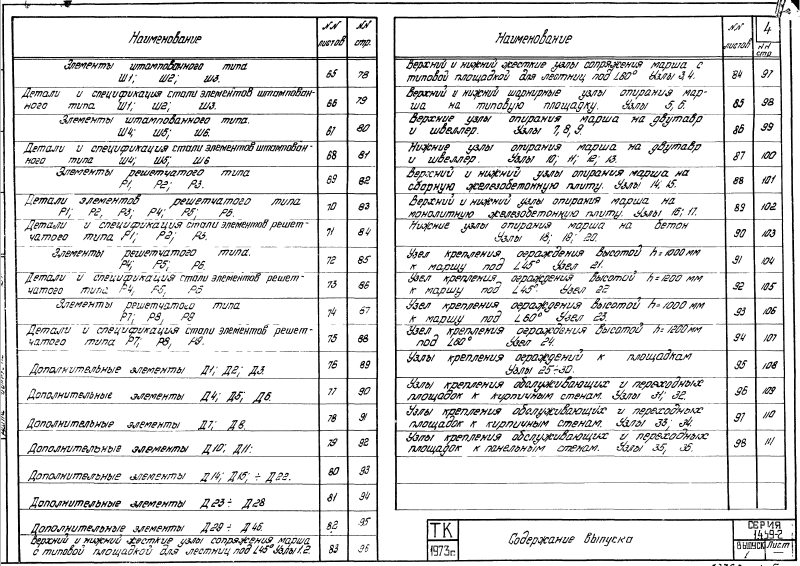 Наименование
N.N листов
N.N стр.
Элементы штампованного типа Ш1; Ш2; Ш3. 65 78
Детали и спецификация стали элементов штампован-
ного типа Ш1; Ш2; Ш3. 66 79
Элементы штампованного типа.
Ш4; Ш5; Ш6. 67 80
Детали и спецификация стали элементов штампован-
ного типа Ш4; Ш5; Ш6 68 81
Элементы решетчатого типа
Р1, Р2; Р3. 69 82
Детали элементов решетчатого типа
Р1; Р2, Р3; Р4; Р5; Р6. 70 83
Детали и спецификация стали элементов решет-
чатого типа Р1; Р2; Р3. 71 84
Элементы решетчатого типа.
Р4; Р5; Р6. 72 85
Детали и спецификация стали элементов решет-
чатого типа Р4, Р5, Р6 73 86
Элементы решетчатого типа
Р7; Р8, Р9 74 87
Детали и спецификация стали элементов решет-
чатого типа Р7; Р8, Р9. 75 88
Дополнительные элементы Д1; Д2; Д3. 76 89
Дополнительные элементы Д4; Д5; Д6. 77 90
Дополнительные элементы Д7; Д8. 78 91
Дополнительные элементы Д10; Д11. 79 92
Дополнительные элементы Д14; Д15; ÷ Д22. 80 93
Дополнительные элементы Д23 ÷ Д28 81 94
Дополнительные элементы Д29 ÷ Д46. 82 95
Верхний и нижний жесткие узлы сопряжения марша
с типовой площадкой для лестниц под L45° Узлы 1.2. 83 96
Наименование
N.N листов
4
N.N стр.
Верхний и нижний жесткие узлы сопряжения марша с
типовой площадкой для лестниц под L60° Узлы 3,4. 84 97
Верхний и нижний шарнирные узлы опирания мар-
ша на типовую площадку. Узлы 5, 6. 85 98
Верхние узлы опирания марша на двутавр
и швеллер. Узлы 7, 8, 9. 86 99
Нижние узлы опирания марша на двутавр
и швеллер. Узлы 10; 11; 12; 13. 87 100
Верхний и нижний узлы опирания марша на
сборную железобетонную плиту. Узлы 14; 15. 88 101
Верхний и нижний узлы опирания марша на
монолитную железобетонную плиту. Узлы 16; 17. 89 102
Нижние узлы опирания марша на бетон
Узлы 18; 19; 20. 90 103
Узел крепления ограждения высотой h=1000 мм
к маршу под L45° Узел 21. 91 104
Узел крепления ограждения высотой h=1200 мм
к маршу под L45° Узел 22 92 105
Узел крепления ограждения высотой h=1000 мм
к маршу под L60° Узел 23. 93 106
Узел крепления ограждения высотой h=1200 мм
под L60° Узел 24. 94 107
Узлы крепления ограждений к площадкам
Узлы 25÷30. 95 108
Узлы крепления обслуживающих и переходных
площадок к кирпичным стенам. Узлы 31; 32. 96 109
Узлы крепления обслуживающих и переходных
площадок к кирпичным стенам. Узлы 33, 34. 97 110
Узлы крепления обслуживающих и переходных
площадок к панельным стенам. Узлы 35, 36. 98 111
ТК
1973г.
Содержание выпуска
СЕРИЯ
1.459-2
Выпуск Лист
1 –